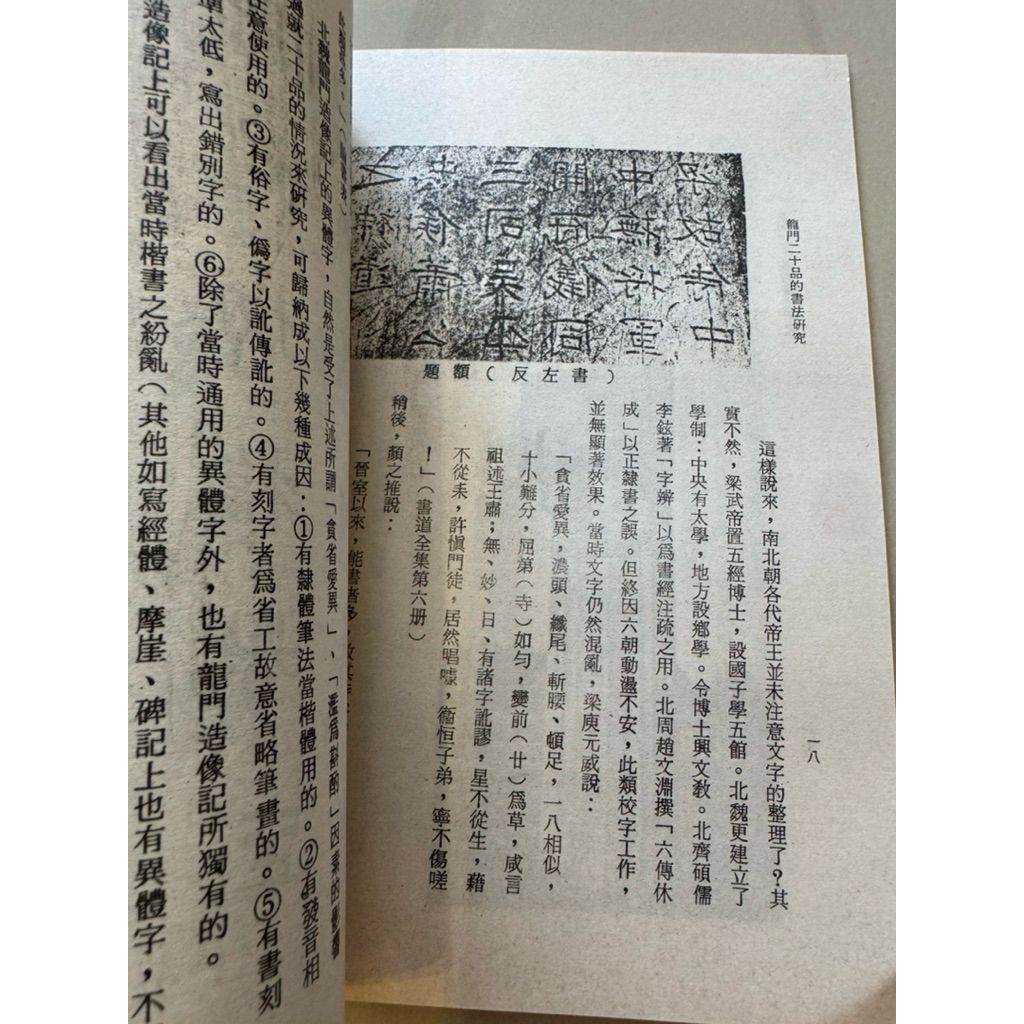 龍門二十品的書法研究
一八
題額（反左書）
這樣說來，南北朝各代帝王並未注意文字的整理了？其
實不然，梁武帝置五經博士，設國子學五館。北魏更建立了
學制：中央有太學，地方設鄉學。令博士興文教。北齊碩儒
李鉉著「字辨」以爲書經注疏之用。北周趙文淵撰「六傳休
成」以正隸書之誤。但終因六朝動盪不安，此類校字工作，
並無顯著效果。當時文字仍然混亂，梁庾元威說：
「貪省愛異，濃頭、纖尾、斬腰、頓足，一八相似，
十小難分，屈第（寺）如勻，變前（廿）爲草，咸言
祖述王肅；無、妙、日、有諸字訛謬，星不從生，藉
不從耒，許愼門徒，居然唱嘘，衞恒子弟，寧不傷嗟
！」（書道全集第六册）
稍後，顏之推說：
「晉室以來，能書者多，
北魏龍門造像記上的異體字，自然是受了上述所謂「貪省愛異」、「濫爲斟酌」因素的影響
過就二十品的情況來研究，可歸納成以下幾種成因：①有隸體筆法當楷體用的。②有發音相
注意使用的。③有俗字、僞字以訛傳訛的。④有刻字者爲省工故意省略筆畫的。⑤有書刻
準太低，寫出錯別字的。⑥除了當時通用的異體字外，也有龍門造像記所獨有的。
造像記上可以看出當時楷書之紛亂（其他如寫經體、摩崖、碑記上也有異體字，不